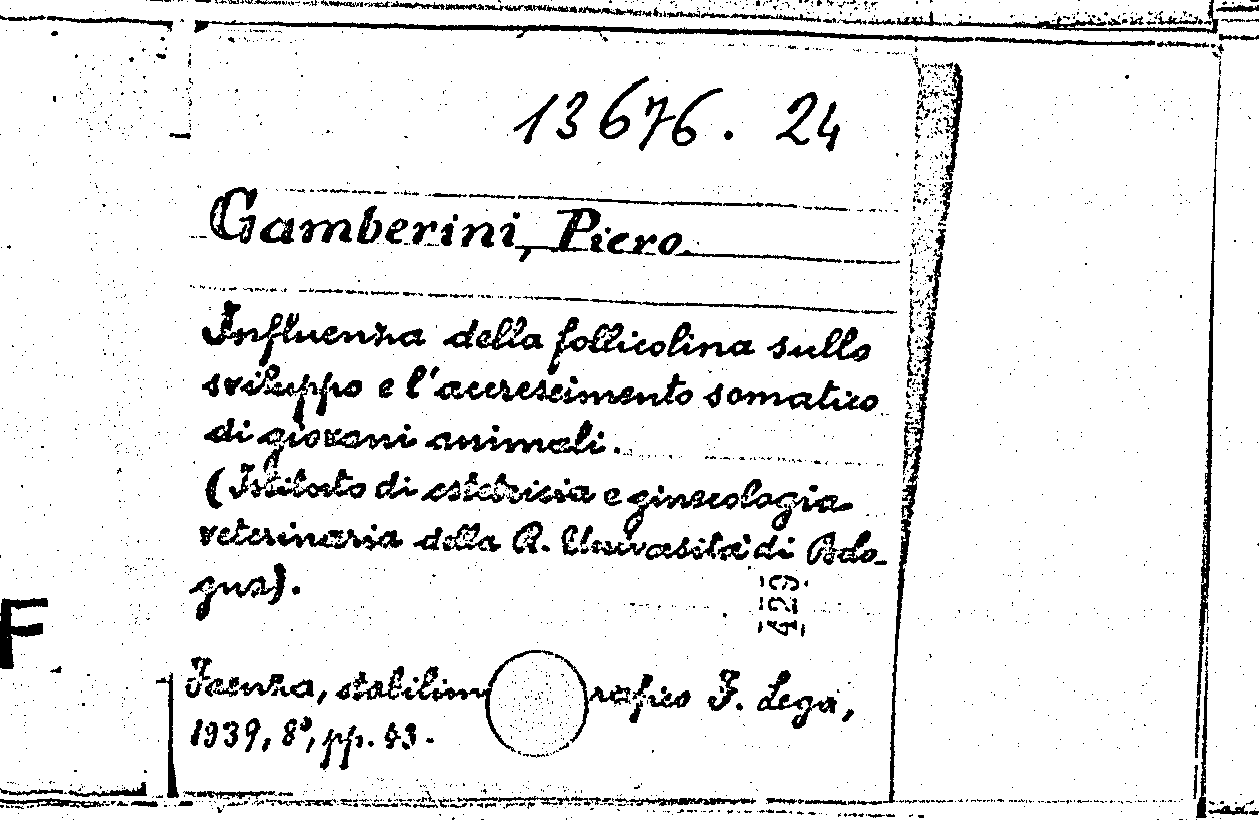 13676. 24
Gamberini, Piero.
Influenza della follicolina sullo
sviluppo e l'accrescimento somatico
di giovani animali.
(Istituto di ostetricia e ginecologia
veterinaria della R. Università di Bolo-
gna).
429
F
Faenza, stabilim rafico F. Lega,
1939, 8°, pp. 43.